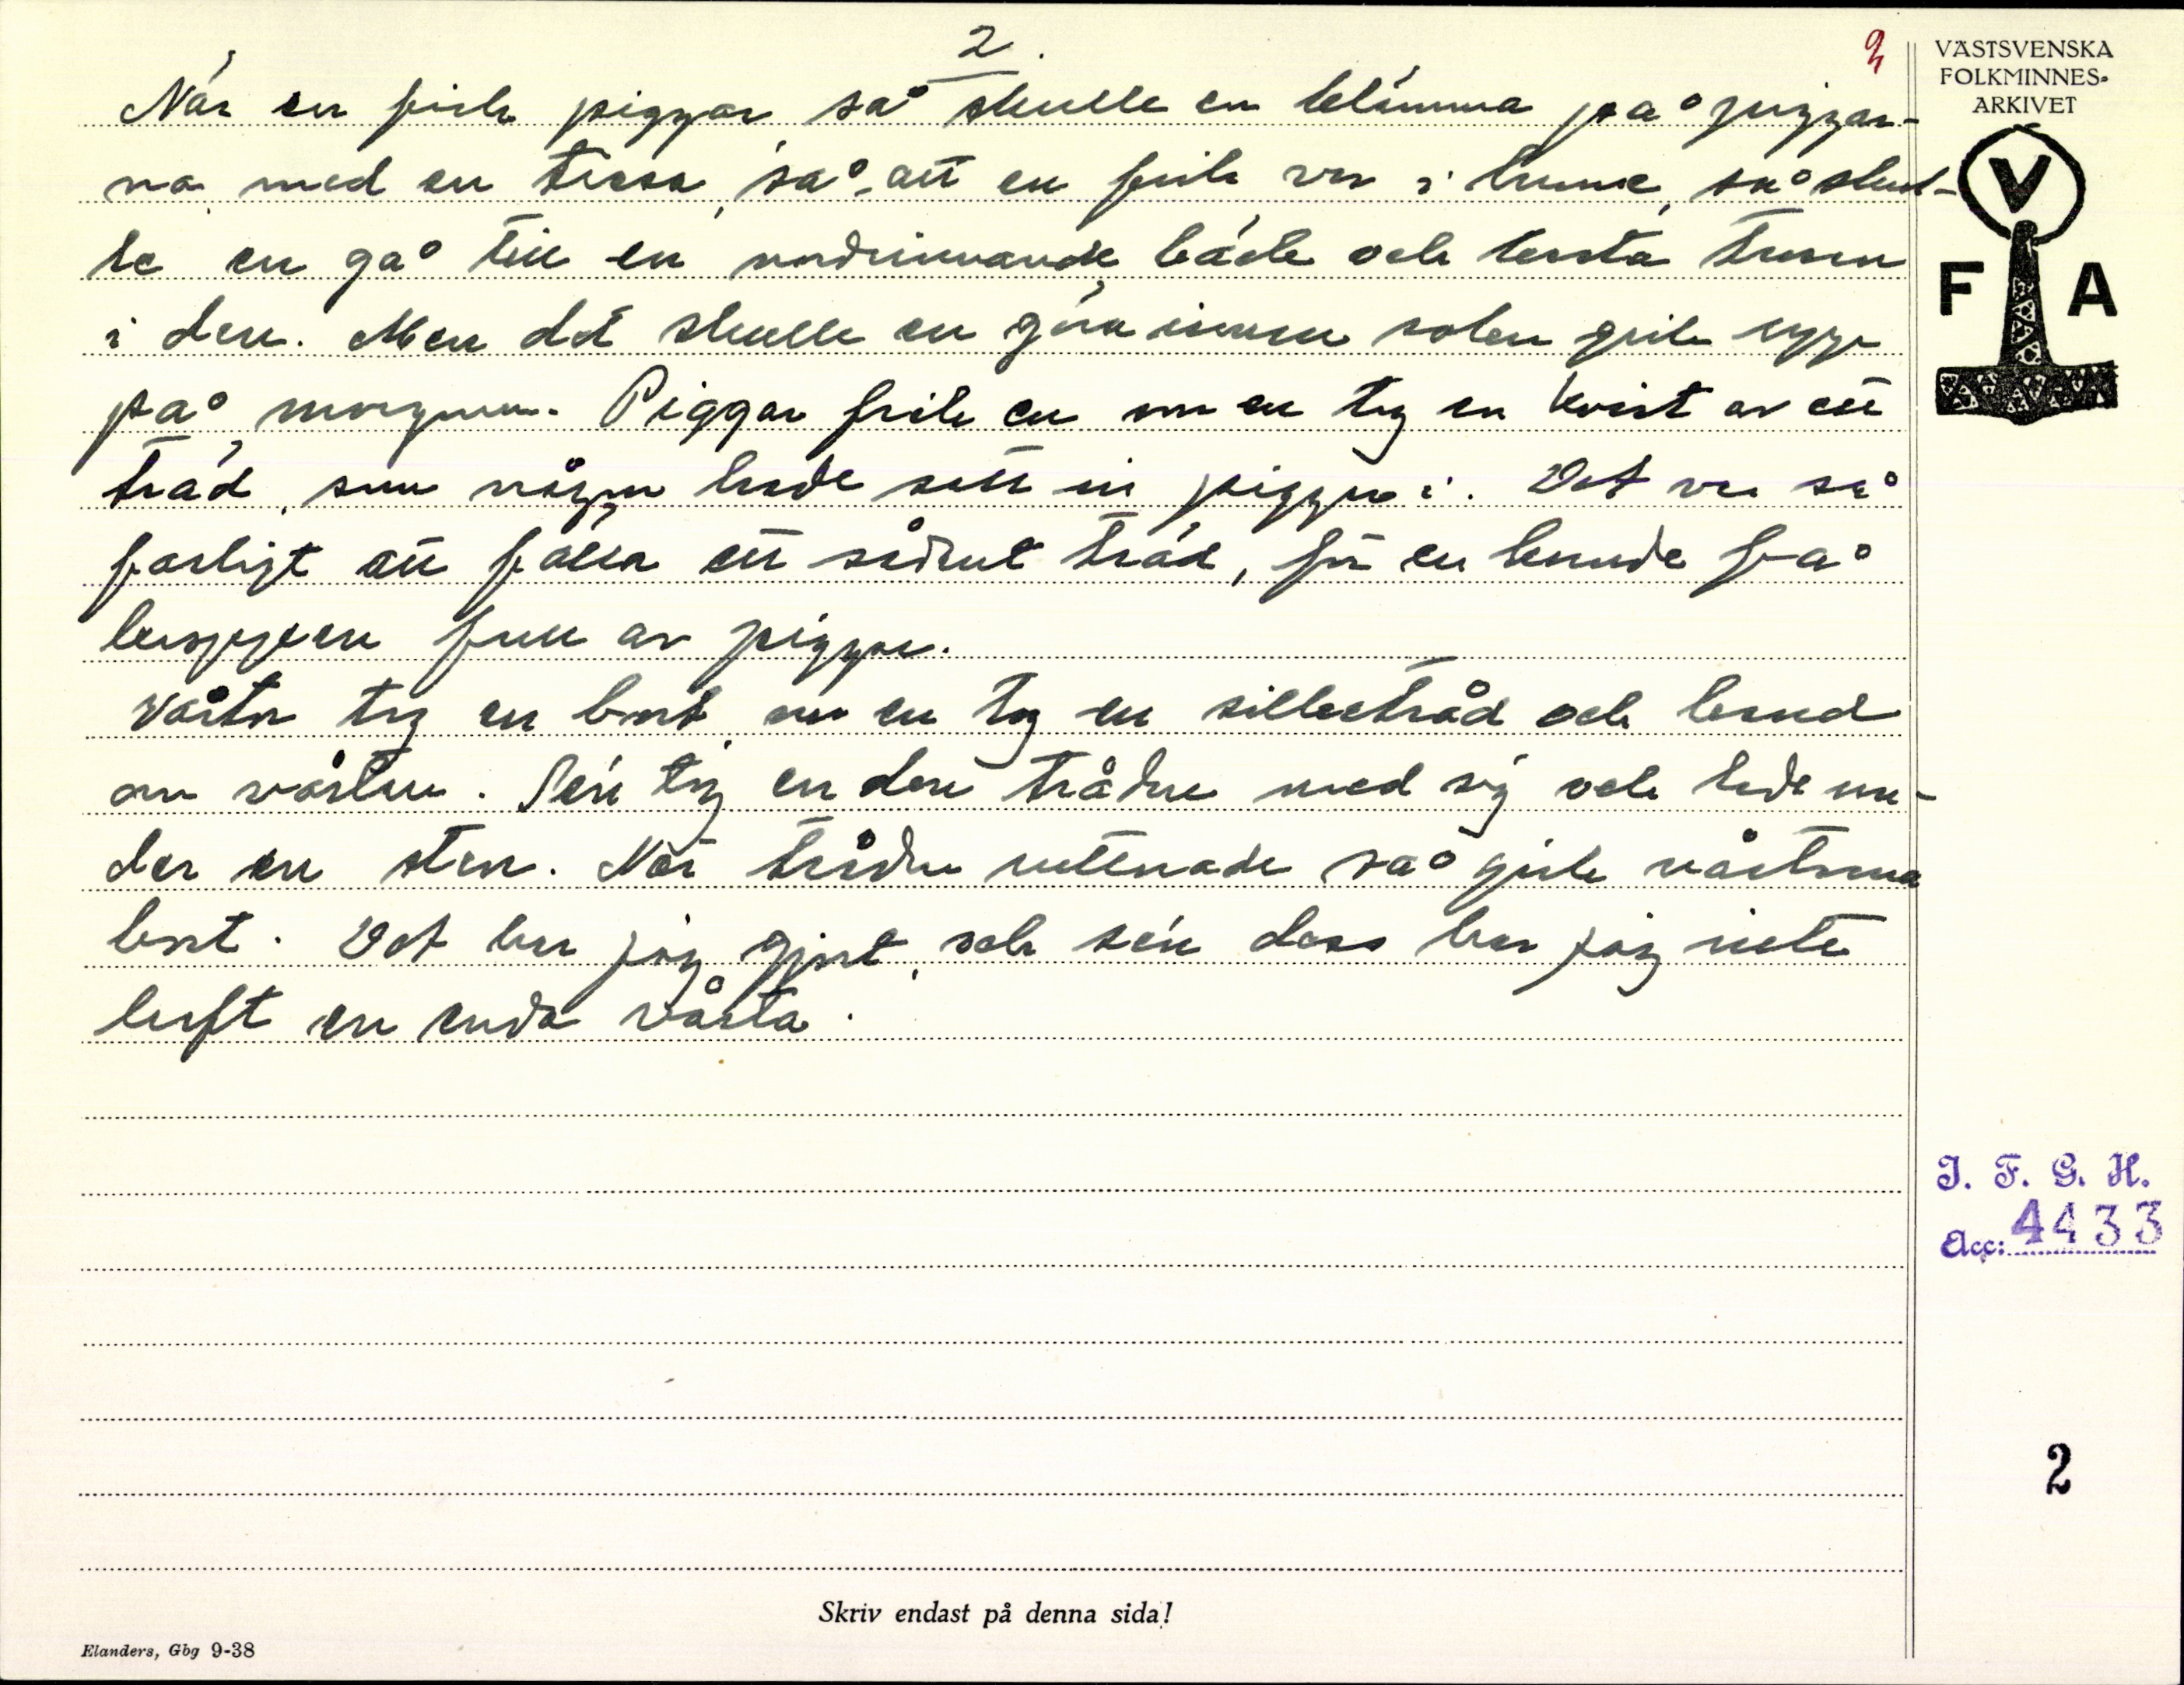 2.
2
När en fick piggar så skulle en klämma på piggar-
na med en trasa, så att en fick var i trasa, så skul-
le en gå till en nordrinnande bäck och kasta trasan
i den. Men det skulle en göra innan solen gick upp
på morgonen. Piggar fick en om en tog en kvist av ett
träd, som någon hade satt in piggar i. Det var så
farligt att fälla ett sådant träd, för en kunde få
kroppen full av piggar.
Vårtor tog en bort om en tog en silkestråd och band
om vårtan. Sen tog en den tråden med sig och lade un-
der en sten. När tråden ruttnade så gick vårtorna
bort. Det har jag gjort, och sen dess har jag inte
haft en enda vårta.
VÄSTSVENSKA
FOLKMINNES-
ARKIVET
V
F A
I. F. G. H.
Acc: 4433
2
Skriv endast på denna sida!
Elanders, Gbg 9-38